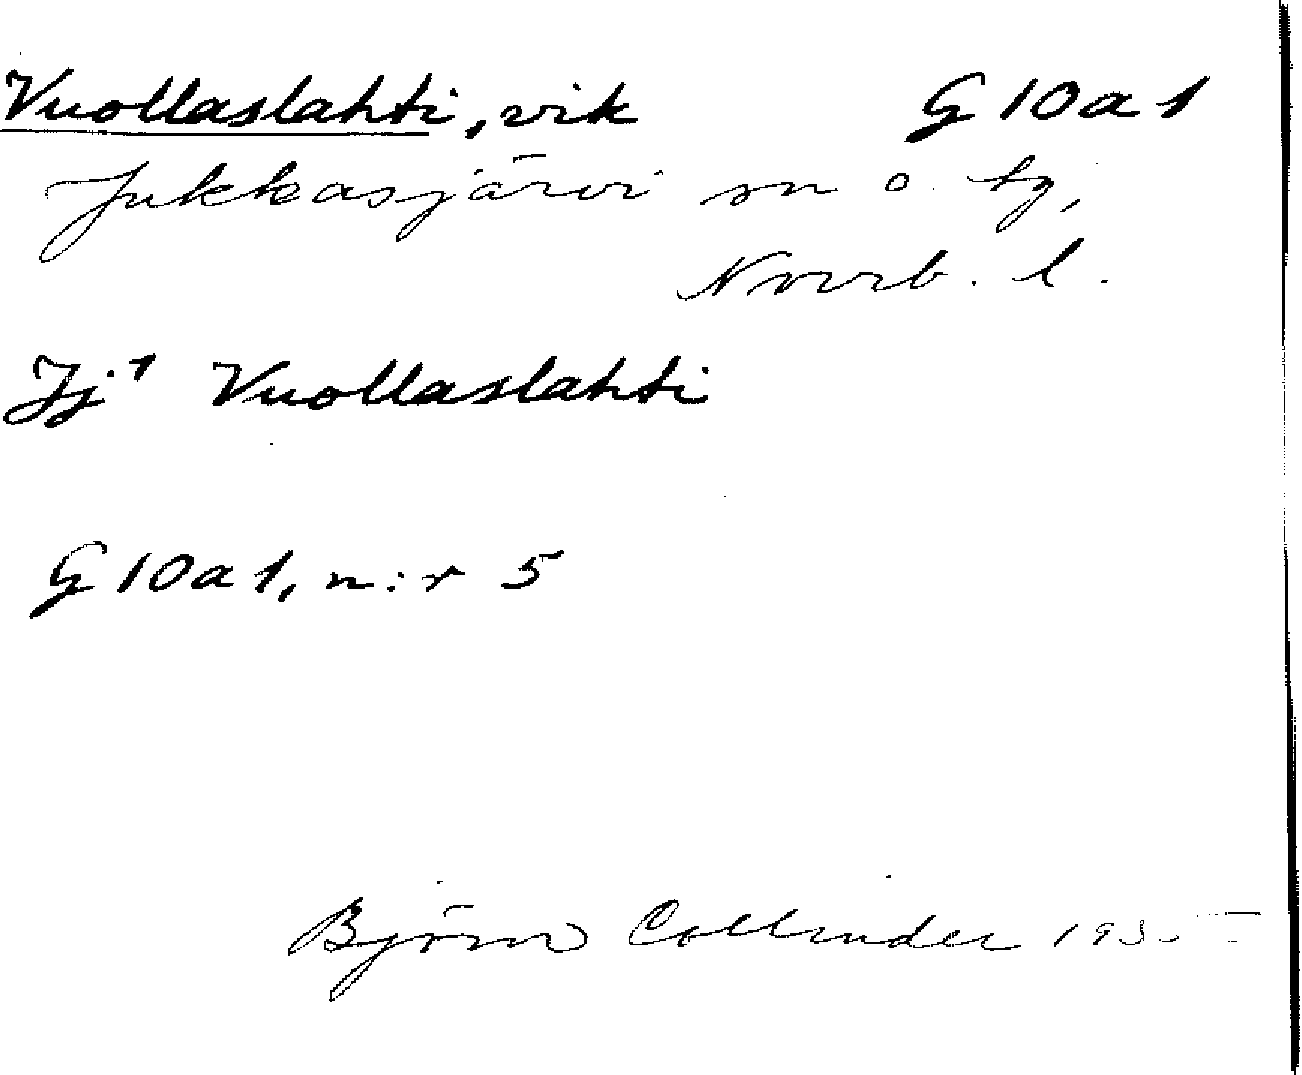 Vuollaslahti, vik G 10 a 1
Jukkasjärvi sn o. tg,
Norrb. l.
Jj1 Vuollaslahti
G 10 a 1, n:r 5
Björn Collinder